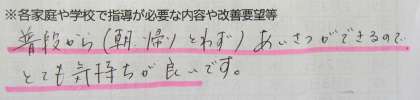 ※各家庭や学校で指導が必要な内容や改善要望等
普段から(朝、帰りとわず)あいさつができるので
とても気持ちが良いです。